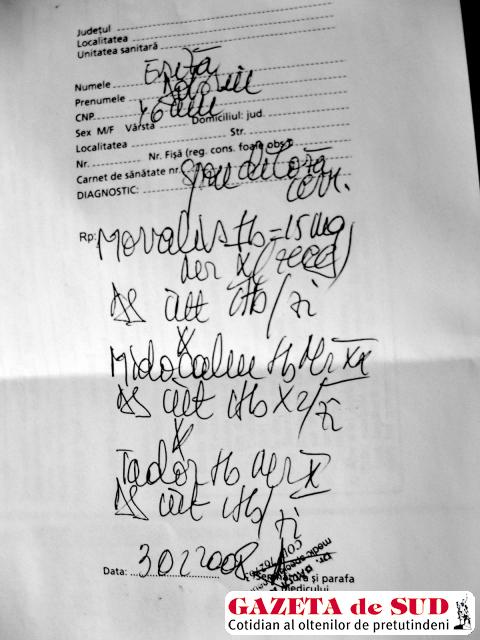 Județul
Localitatea
Unitatea sanitară
Numele
Prenumele
CNP
Sex M/F Vârsta Domiciliul: jud.
Localitatea Str.
Nr. Nr. Fișă (reg. cons. foaie obs.)
Carnet de sănătate nr.
DIAGNOSTIC: Spondiloză
cerv.
Rp: Movalis tb = 15 mg
X (zece)
DS int 1tb/zi
X
Midocalm tb XX
DS int 1tb x 2/zi
X
Tador tb X
DS int 1tb/zi
Data: 3022008
Semnătura și parafa
medicului
GAZETA de SUD
Cotidian al oltenilor de pretutindeni